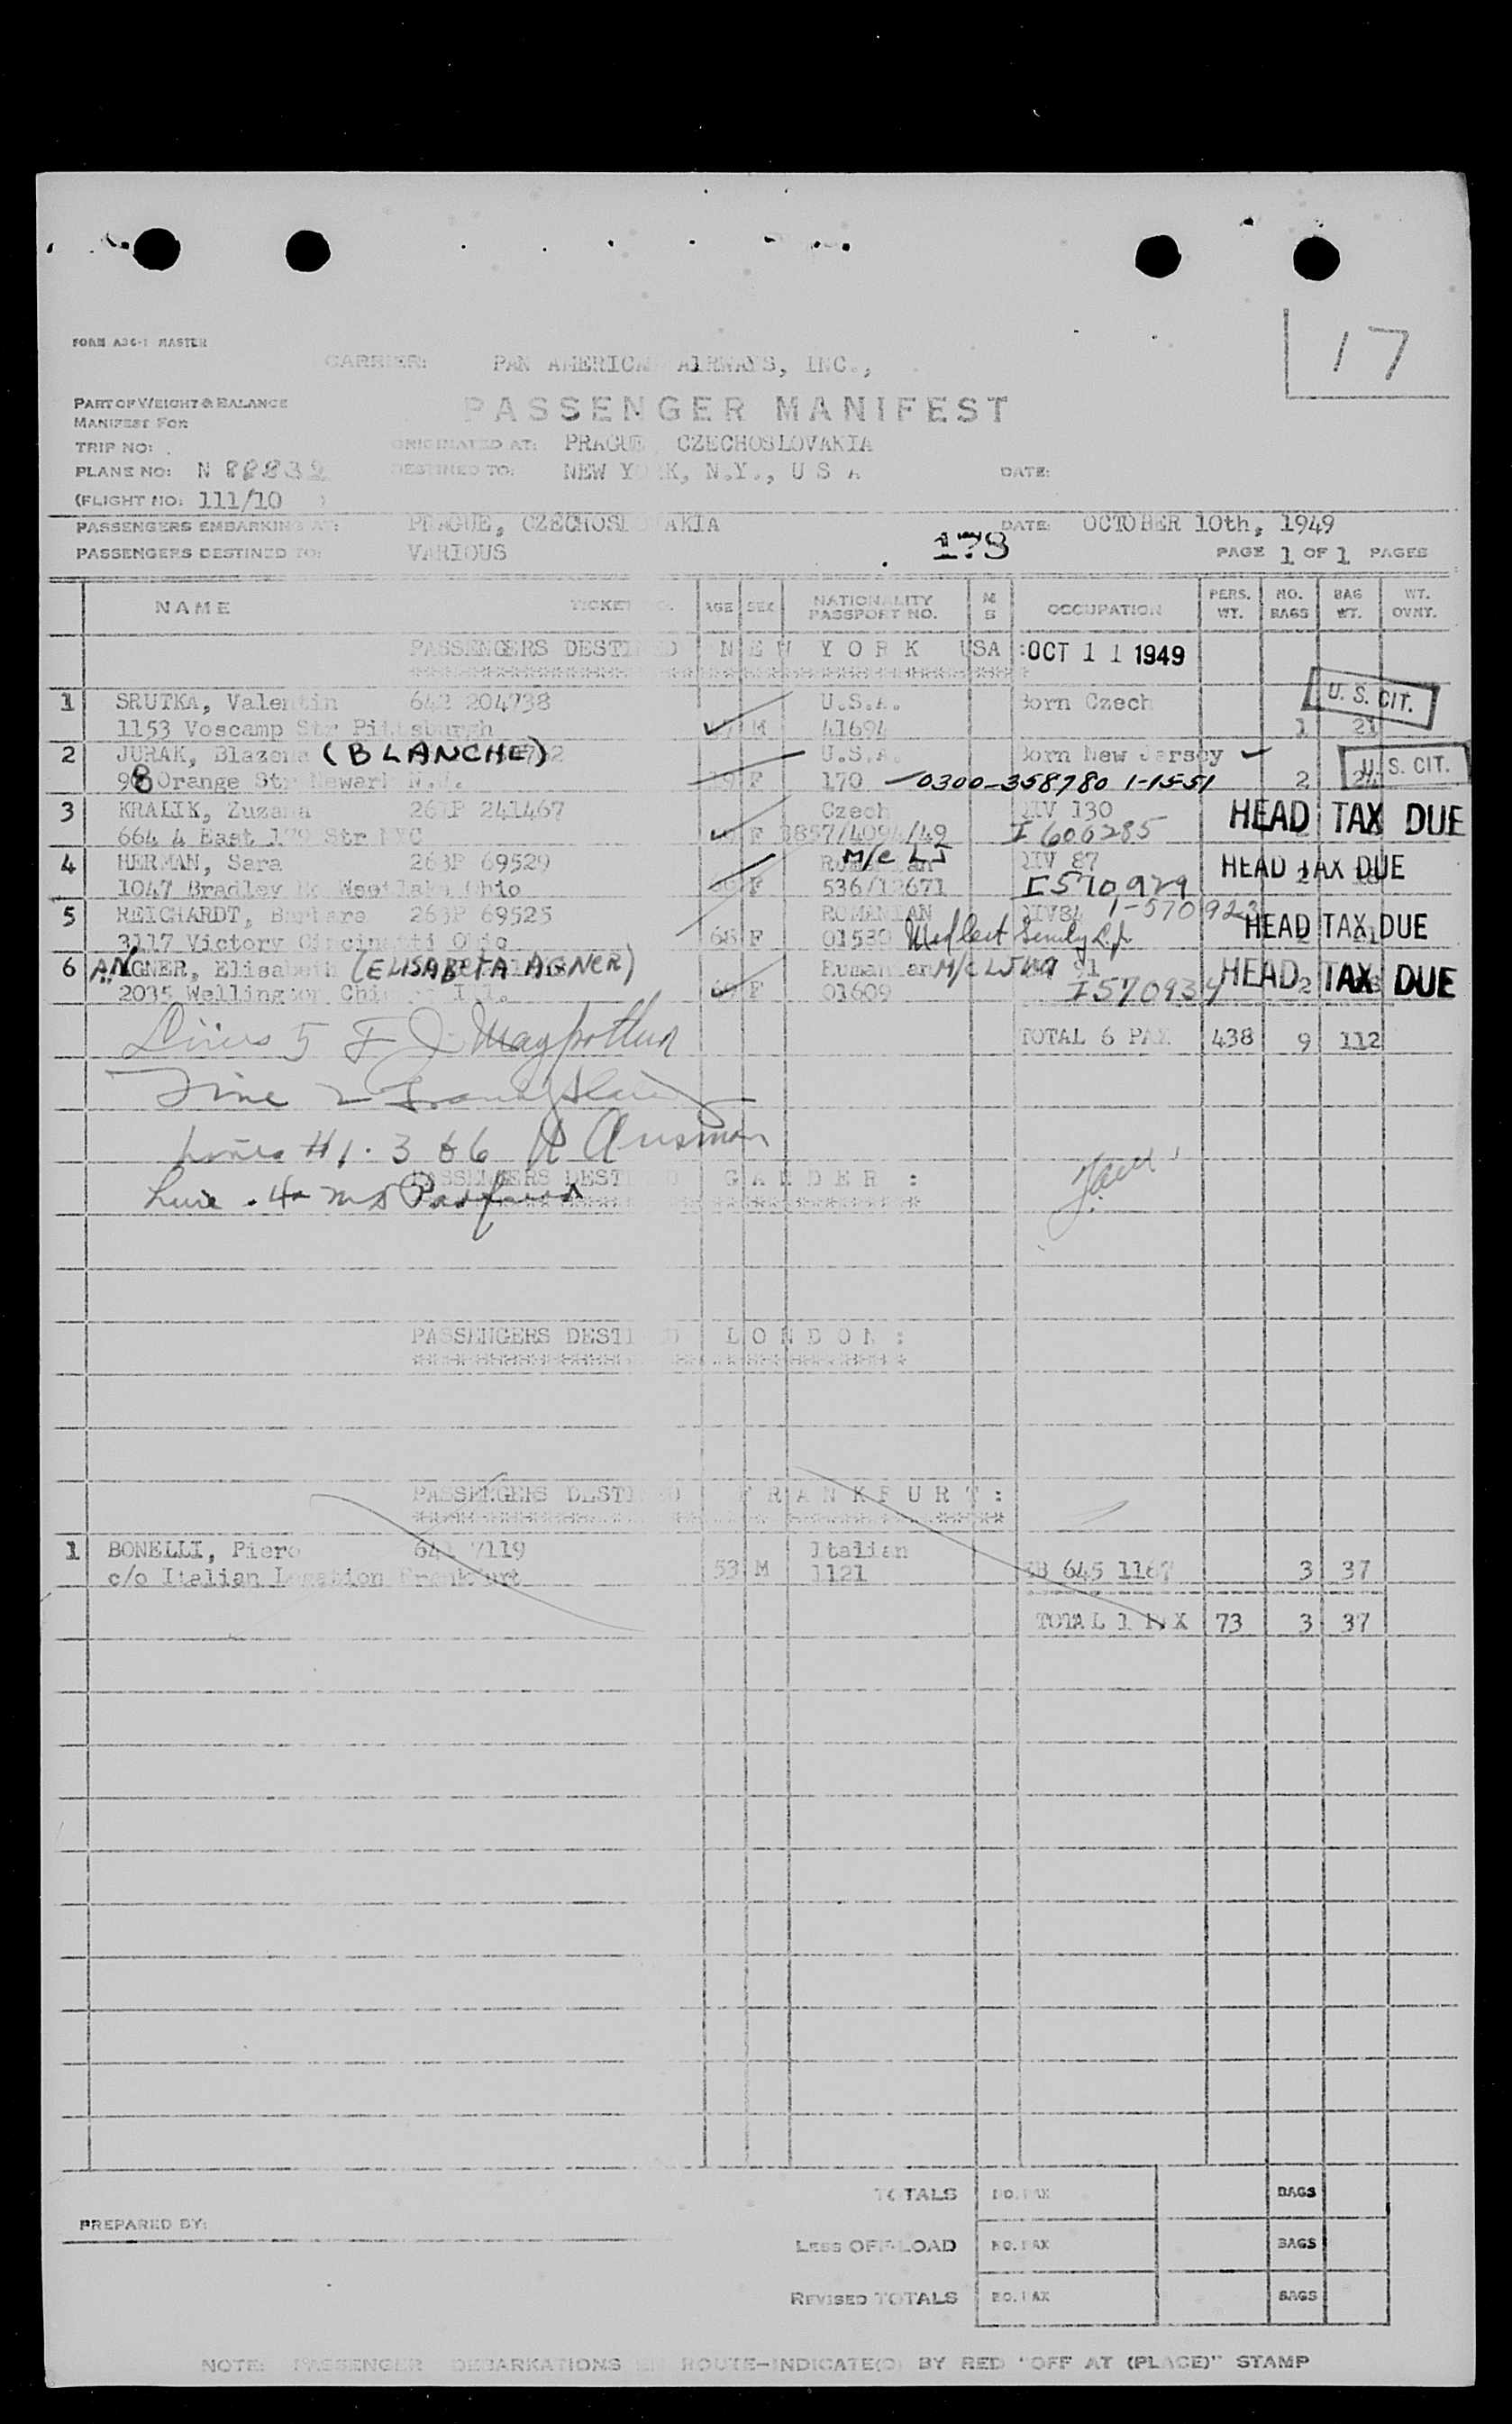 FORM A36-1 MASTER
CARRIER: PAN AMERICAN AIRWAYS, INC.,
17
PART OF WEIGHT & BALANCE
MANIFEST FOR
PASSENGER MANIFEST
TRIP NO:
ORIGINATED AT: PRAGUE, CZECHOSLOVAKIA
PLANE NO: N 88832
DESTINED TO: NEW YORK, N.Y., U S A DATE:
(FLIGHT NO: 111/10 )
PASSENGERS EMBARKING AT: PRAGUE, CZECHOSLOVAKIA DATE: OCTOBER 10th, 1949
PASSENGERS DESTINED TO: VARIOUS 178 PAGE 1 OF 1 PAGES
NAME TICKET NO. AGE SEX NATIONALITY PASSPORT NO. M S OCCUPATION PERS. WT. NO. BAGS BAG WT. WT. OVNT.
PASSENGERS DESTINED NEW YORK USA : OCT 11 1949
1 SRUTKA, Valentin 642 204738 U.S.A. Born Czech U. S. CIT.
1153 Voscamp Str Pittsburgh M 41694 1 21
2 JURAK, Blazena (BLANCHE) U.S.A. Born New Jersey
98 Orange Str Newark N.J. 19 F 170 0300-358780 1-15-51 2 24 U. S. CIT.
3 KRALIK, Zuzana 263P 241467 Czech QIV 130 HEAD TAX DUE
664 4 East 179 Str NYC F 3857/4094/49 I 606285
4 HERMAN, Sara 263P 69529 M/c LJ QIV 87 HEAD TAX DUE
1047 Bradley Westlake Ohio F 536/12671 I 570929
5 REICHARDT, Barbara 263P 69525 ROMANIAN 1-570923
3117 Victory Cincinnati Ohio 68 F 01530 Med Cert HEAD TAX DUE
6 ANGNER, Elisabeth (ELISABETA AGNER) Rumanian M/c LJ 91 HEAD TAX DUE
2035 Wellington Chicago Ill. F 01609 I 570934 2
Lines 5 F J
TOTAL 6 PAX 438 9 112
Line 2
Lines #1. 3 & 6 R Ausman
PASSENGERS DESTINED GANDER :
Line 4
PASSENGERS DESTINED LONDON :
PASSENGERS DESTINED FRANKFURT :
1 BONELLI, Piero 641 7119 Italian
c/o Italian Legation Frankfurt 53 M 1121 645 1167 3 37
TOTAL 1 PAX 73 3 37
TOTALS NO. PAX BAGS
PREPARED BY:
LESS OFF-LOAD NO. PAX BAGS
REVISED TOTALS NO. PAX BAGS
NOTE: PASSENGER DEBARKATIONS EN ROUTE-INDICATE(D) BY RED "OFF AT (PLACE)" STAMP